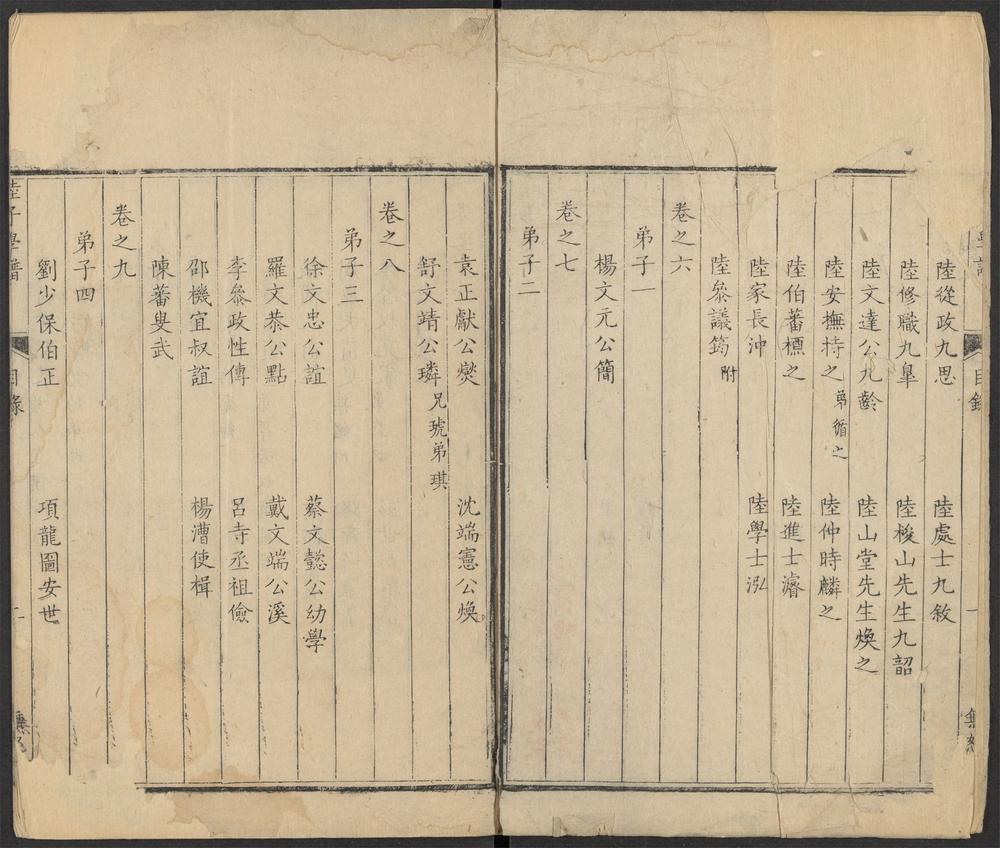 目錄 一
陸從政九思 陸處士九敘
陸修職九皐 陸梭山先生九韶
陸文達公九齡 陸山堂先生煥之
陸安撫持之 弟循之 陸仲時麟之
陸伯蕃櫄之 陸進士濬
陸家長沖 陸學士泓
陸參議筠 附
卷之六
弟子一
楊文元公簡
卷之七
弟子二
袁正獻公燮 沈端憲公煥
舒文靖公璘 兄琥弟琪
卷之八
弟子三
徐文忠公誼 蔡文懿公幼學
羅文恭公點 戴文端公溪
李參政性傳 呂寺丞祖儉
邵機宜叔誼 楊漕使楫
陳蕃叟武
卷之九
弟子四
劉少保伯正 項龍圖安世
陸子學譜 目錄